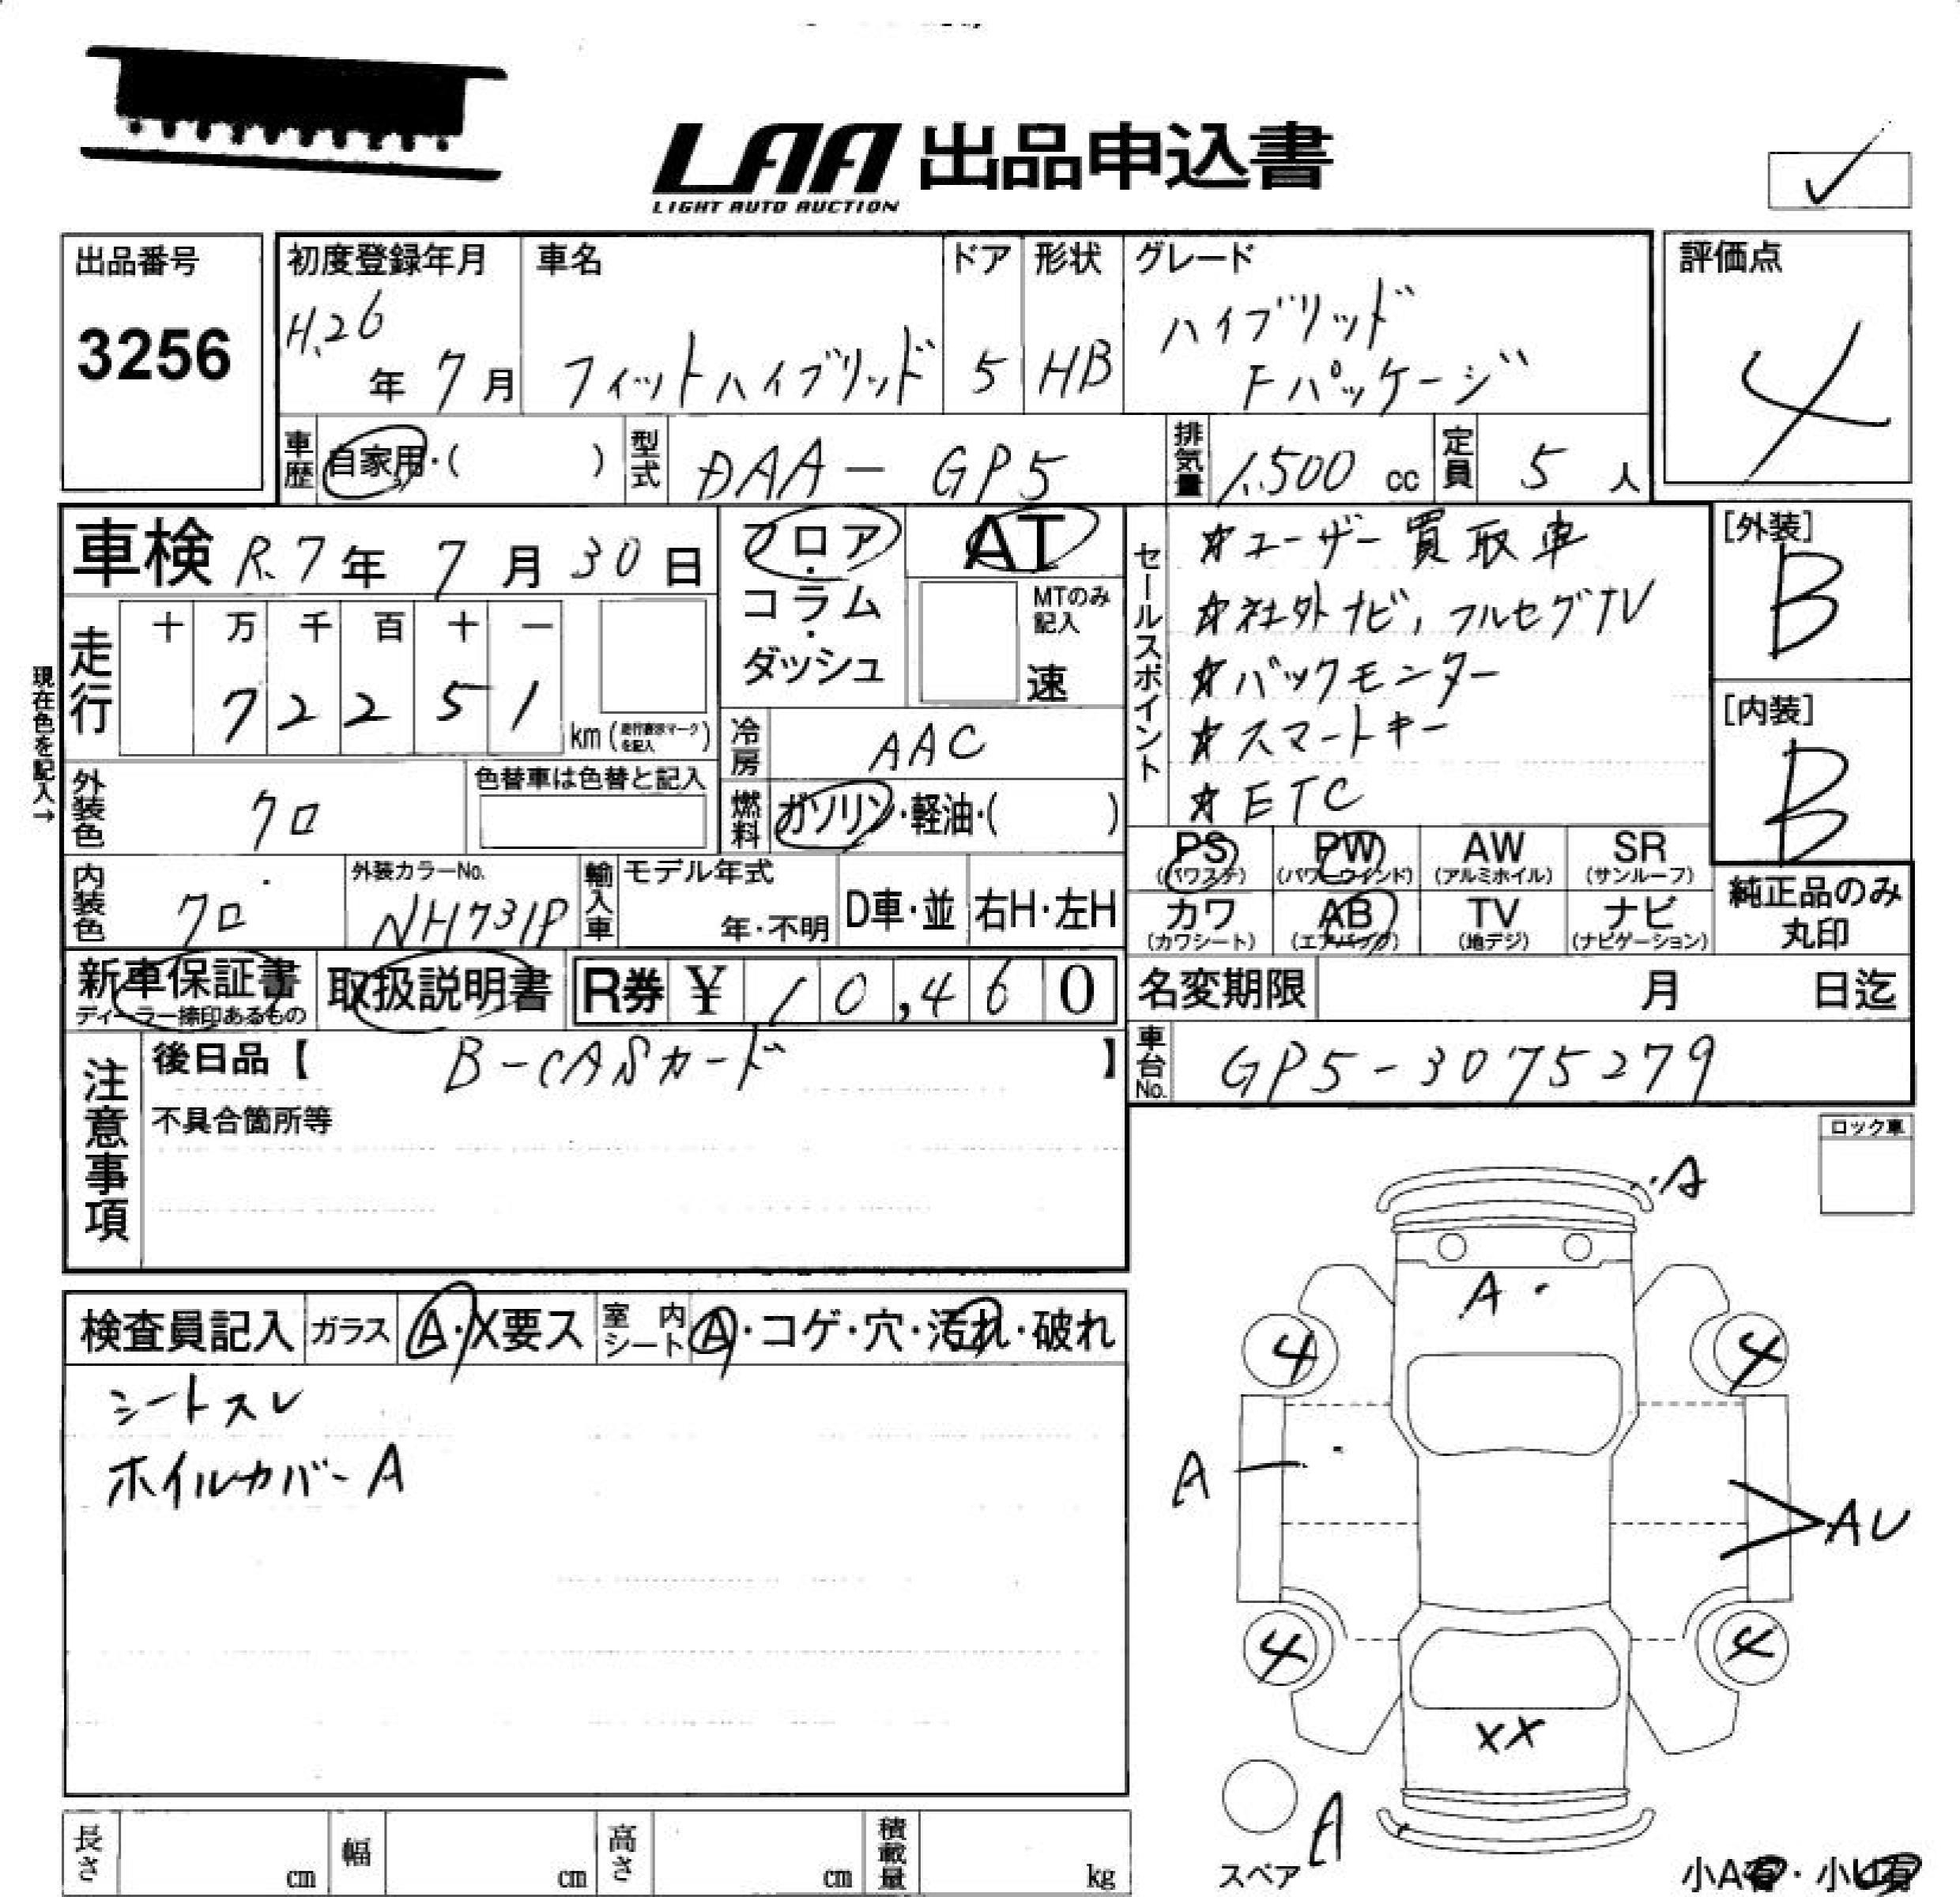 LAA 出品申込書
LIGHT AUTO AUCTION
出品番号
3256
初度登録年月
H.26年 7月
車名
フィットハイブリッド
ドア
5
形状
HB
グレード
ハイブリッド
Fパッケージ
評価点
4
車歴 自家用・( )
型式 DAA-GP5
排気量 1,500 cc
定員 5 人
車検 R.7年 7月 30日
フロア・コラム・ダッシュ
AT
MTのみ記入
速
セールスポイント
☆ユーザー買取車
☆社外ナビ,フルセグTV
☆バックモニター
☆スマートキー
☆ETC
[外装]
B
[内装]
B
現在色を記入→
走行
十 万 千 百 十 一
7 2 2 5 1
km
冷房 AAC
外装色 クロ
色替車は色替と記入
燃料 ガソリン・軽油・( )
内装色 クロ
外装カラーNo.
NH731P
輸入車
モデル年式
年・不明
D車・並
右H・左H
PS (パワステ)
PW (パワーウインド)
AW (アルミホイル)
SR (サンルーフ)
カワ (カワシート)
AB (エアバッグ)
TV (地デジ)
ナビ (ナビゲーション)
純正品のみ
丸印
新車保証書
ディーラー捺印あるもの
取扱説明書
R券 ¥ 10,460
名変期限 月 日迄
注意事項
後日品【 B-CASカード 】
不具合箇所等
車台No. GP5-3075279
ロック車
検査員記入
ガラス A・X要ス
室内シート A・コゲ・穴・汚れ・破れ
シートスレ
ホイルカバーA
A
A
4
4
A
AU
4
4
XX
スペア
A
小A有・小U有
長さ cm
幅 cm
高さ cm
積載量 kg